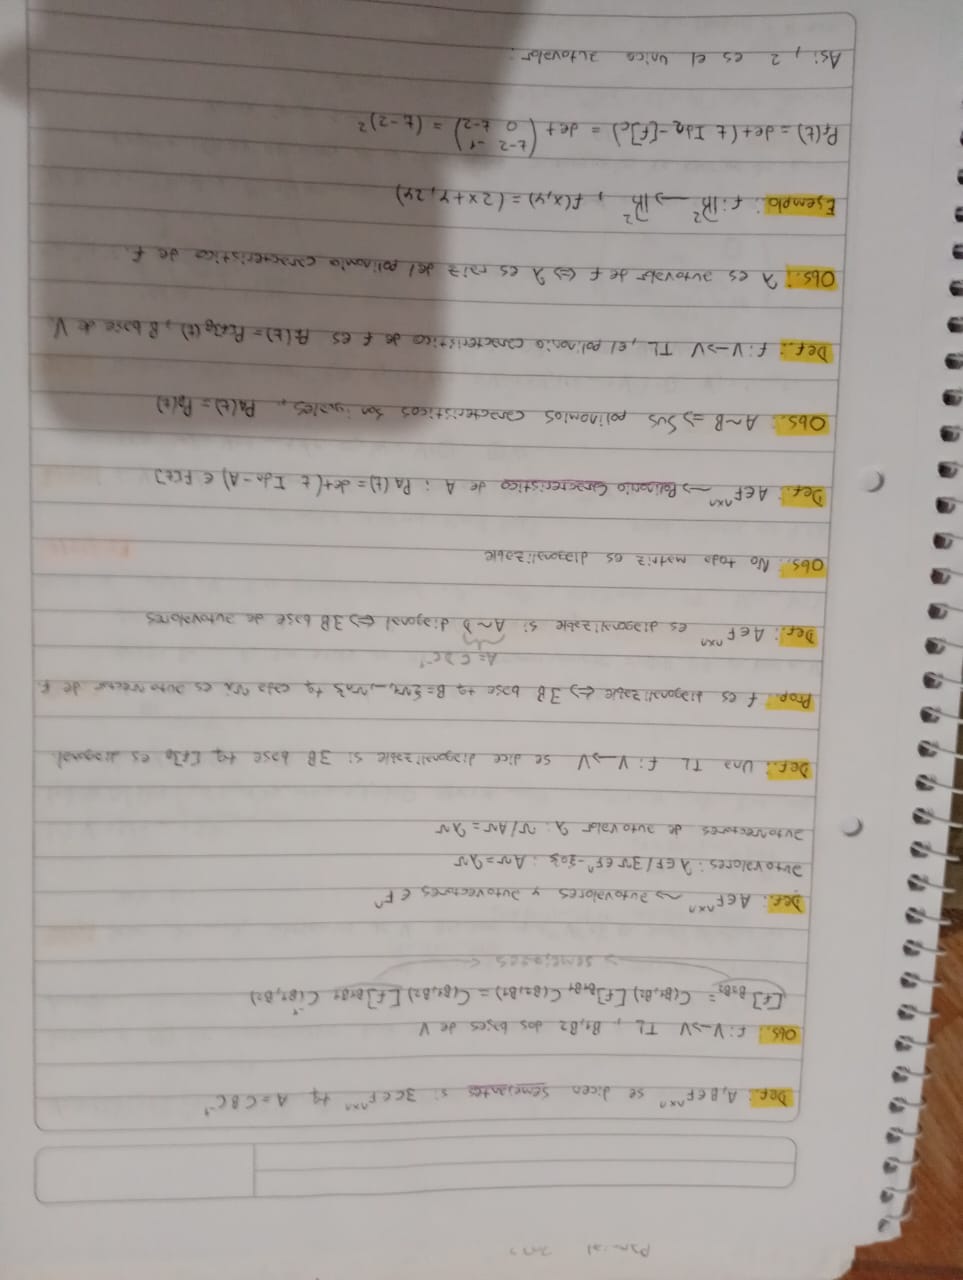 Def.: A,B ∈ F^{n×n} se dicen semejantes si ∃C ∈ F^{n×n} tq A = CBC⁻¹
Obs. f: V → V TL, B1, B2 dos bases de V
[f]_{B2B2} = C(B1,B2) [f]_{B1B1} C(B2,B1) = C(B1,B2) [f]_{B1B1} C(B1,B2)⁻¹
→ semejantes ←
Def.: A ∈ F^{n×n} ⇝ autovalores y autovectores ∈ F^n
autovalores: λ ∈ F / ∃v ∈ F^n - {0}: Av = λv
autovectores de autovalor λ: v / Av = λv
Def.: Una TL f: V → V se dice diagonalizable si ∃B base tq [f]_B es diagonal.
Prop. f es diagonalizable ⇔ ∃B base tq B = {v1, ..., vn} tq cada vi es autovector de f.
A = CDC⁻¹
Def.: A ∈ F^{n×n} es diagonalizable si A ~ D diagonal ⇔ ∃B base de autovalores
Obs.: No toda matriz es diagonalizable
Def.: A ∈ F^{n×n} ⇝ Polinomio Característico de A: P_A(t) = det(t Idn - A) ∈ F[t]
Obs.: A ~ B ⇒ Sus polinomios característicos son iguales, P_A(t) = P_B(t)
Def.: f: V → V TL, el polinomio característico de f es P_f(t) = P_{[f]_B}(t), B base de V.
Obs.: λ es autovalor de f ⇔ λ es raíz del polinomio característico de f.
Ejemplo: f: ℝ² → ℝ², f(x,y) = (2x+y, 2y)
P_f(t) = det(t Id2 - [f]_C) = det (t-2 -1
0 t-2) = (t-2)²
Así, 2 es el único autovalor.